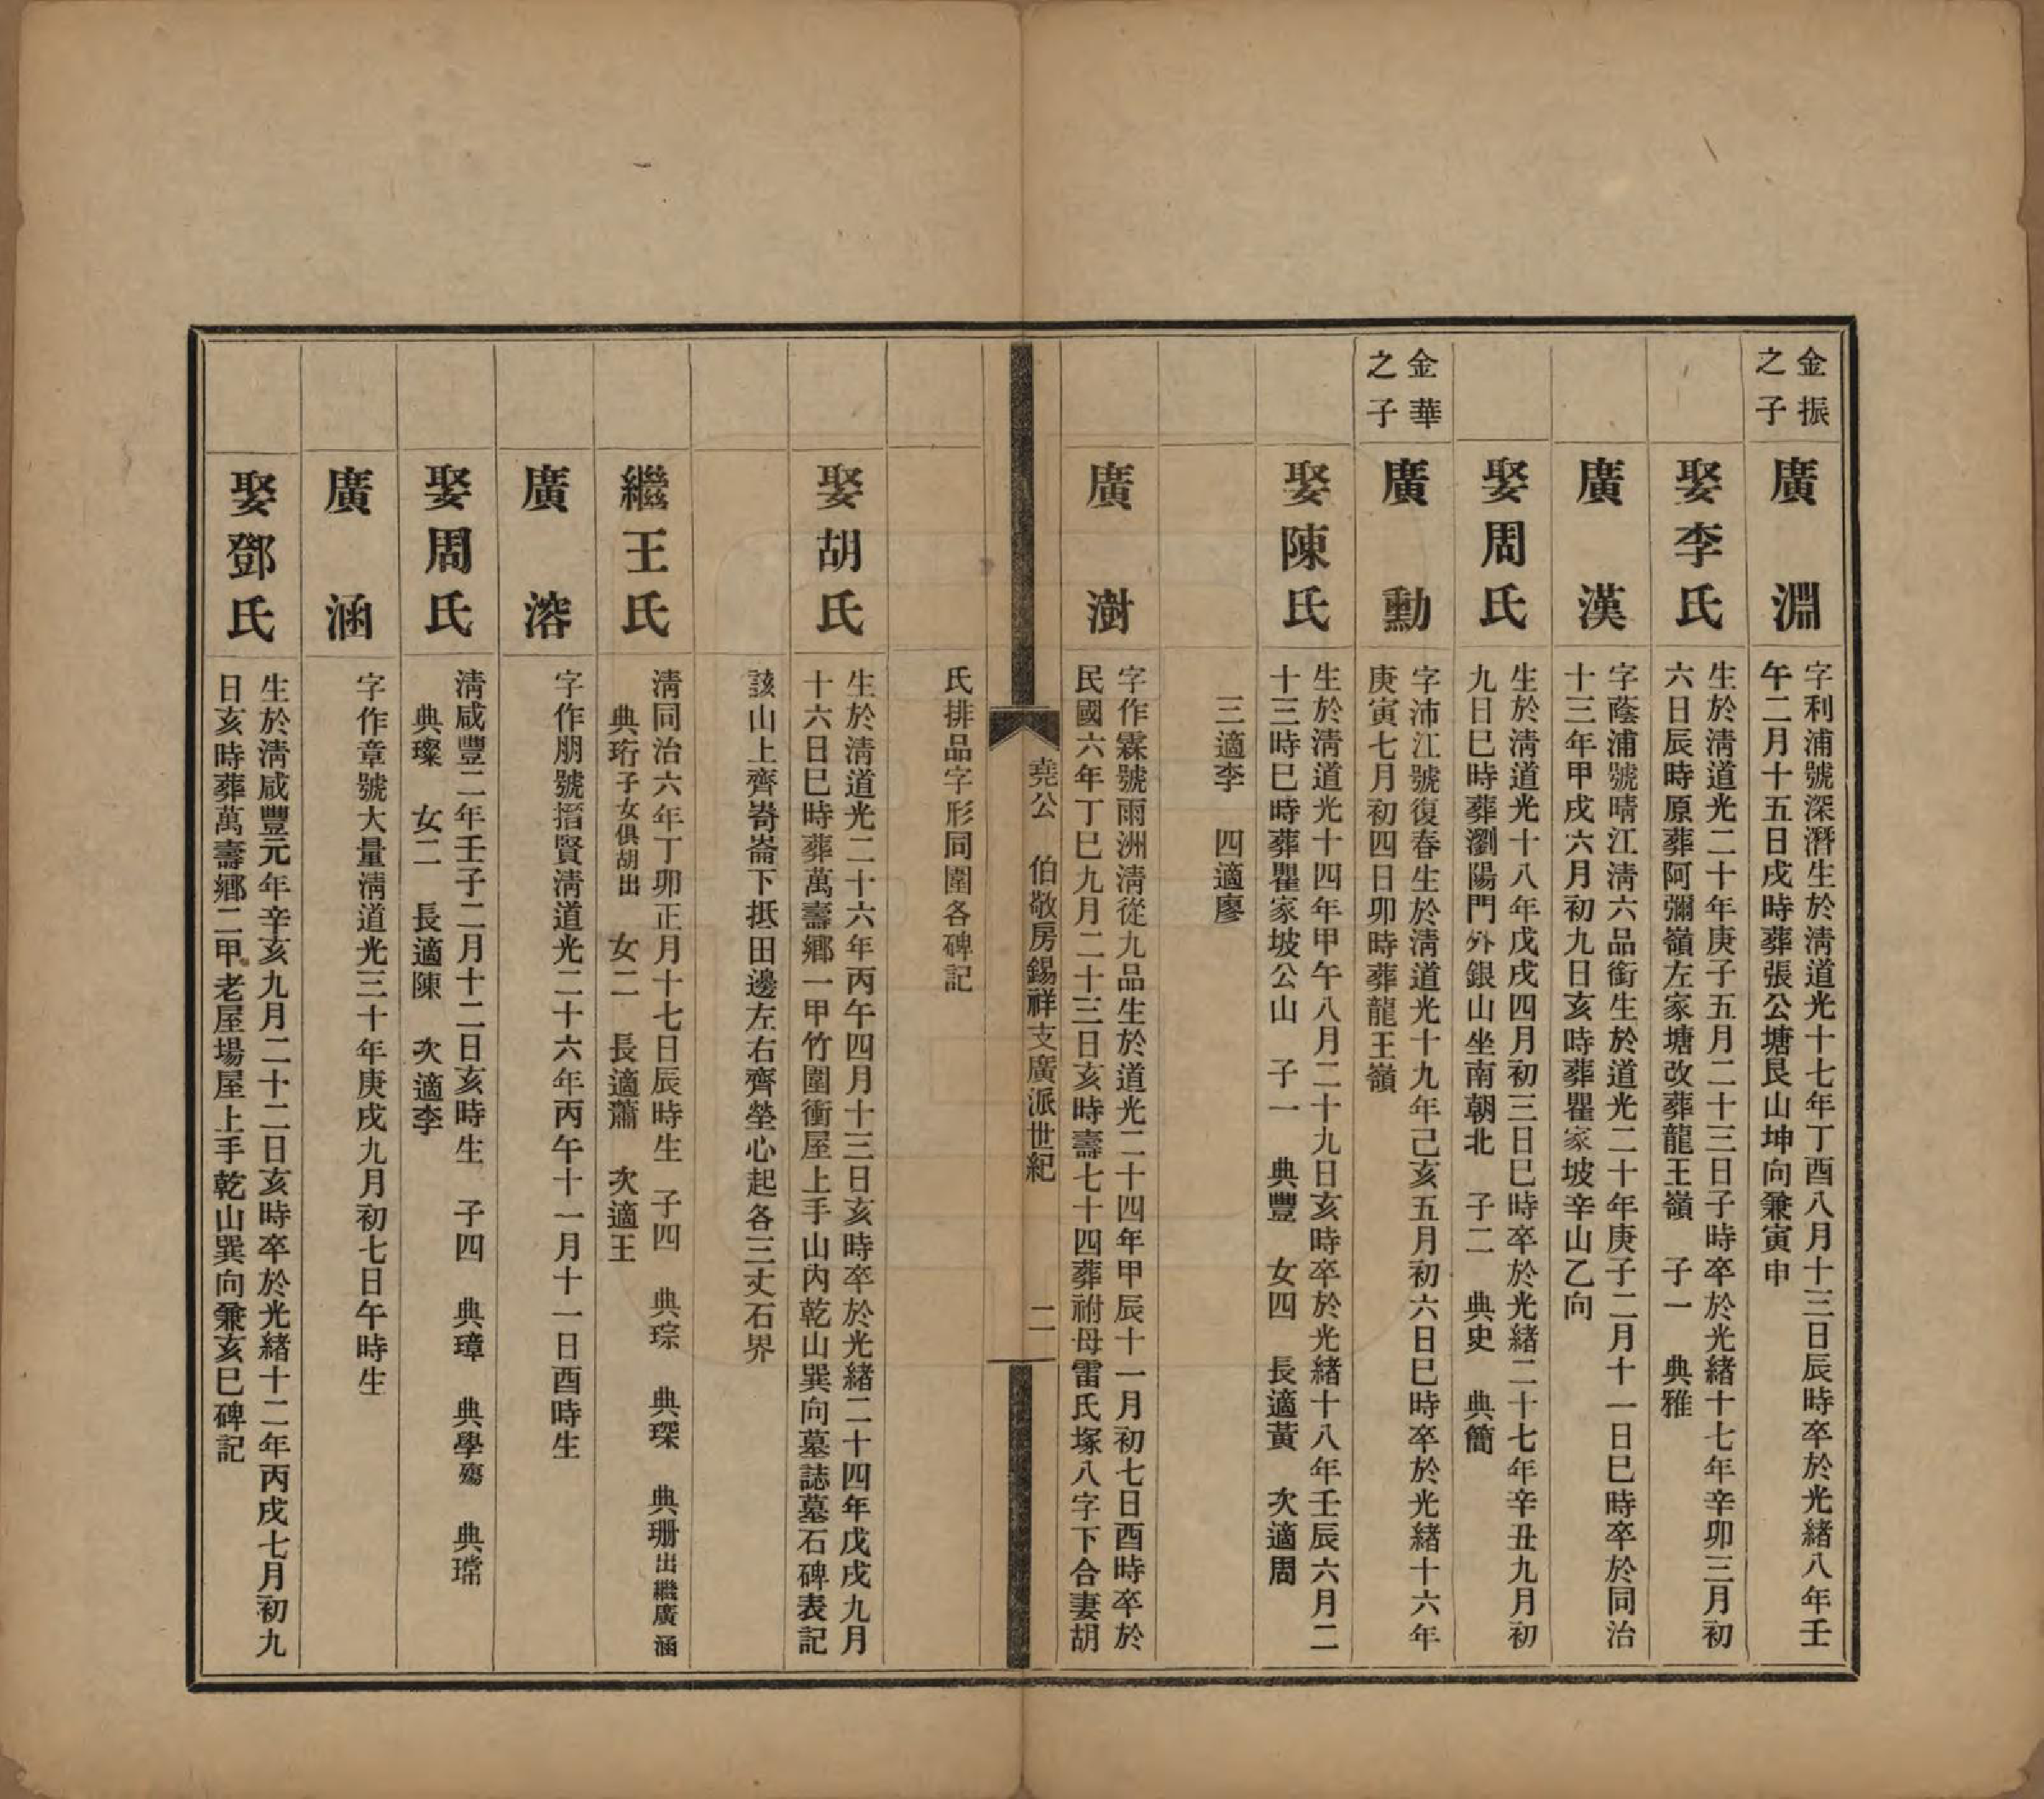 金振
之子
廣淵
字利浦號深潛生於清道光十七年丁酉八月十三日辰時卒於光緒八年壬
午二月十五日戌時葬張公塘艮山坤向兼寅申
娶李氏
生於清道光二十年庚子五月二十三日子時卒於光緒十七年辛卯三月初
六日辰時原葬阿彌嶺左家塘改葬龍王嶺　子一　典雅
廣漢
字蔭浦號晴江清六品銜生於道光二十年庚子二月十一日巳時卒於同治
十三年甲戌六月初九日亥時葬瞿家坡辛山乙向
娶周氏
生於清道光十八年戊戌四月初三日巳時卒於光緒二十七年辛丑九月初
九日巳時葬瀏陽門外銀山坐南朝北　子二　典史　典簡
金華
之子
廣勳
字沛江號復春生於清道光十九年己亥五月初六日巳時卒於光緒十六年
庚寅七月初四日卯時葬龍王嶺
娶陳氏
生於清道光十四年甲午八月二十九日亥時卒於光緒十八年壬辰六月二
十三時巳時葬瞿家坡公山　子一　典豐　女四　長適黃　次適周
三適李　四適廖
廣澍
字作霖號雨洲清從九品生於道光二十四年甲辰十一月初七日酉時卒於
民國六年丁巳九月二十三日亥時壽七十四葬祔母雷氏塚八字下合妻胡
堯公　伯敬房錫祥支廣派世紀　二
氏排品字形同圍各碑記
娶胡氏
生於清道光二十六年丙午四月十三日亥時卒於光緒二十四年戊戌九月
十六日巳時葬萬壽鄉一甲竹圍衝屋上手山內乾山巽向墓誌墓石碑表記
該山上齊崙下抵田邊左右齊塋心起各三丈石界
繼王氏
清同治六年丁卯正月十七日辰時生　子四　典琮　典琛　典珊出繼廣涵
典珩子女俱胡出　女二　長適蕭　次適王
廣溶
字作朋號搢賢清道光二十六年丙午十一月十一日酉時生
娶周氏
清咸豐二年壬子二月十二日亥時生　子四　典璋　典學殤　典璫
典璨　女二　長適陳　次適李
廣涵
字作章號大量清道光三十年庚戌九月初七日午時生
娶鄧氏
生於清咸豐元年辛亥九月二十二日亥時卒於光緒十二年丙戌七月初九
日亥時葬萬壽鄉二甲老屋場屋上手乾山巽向兼亥巳碑記